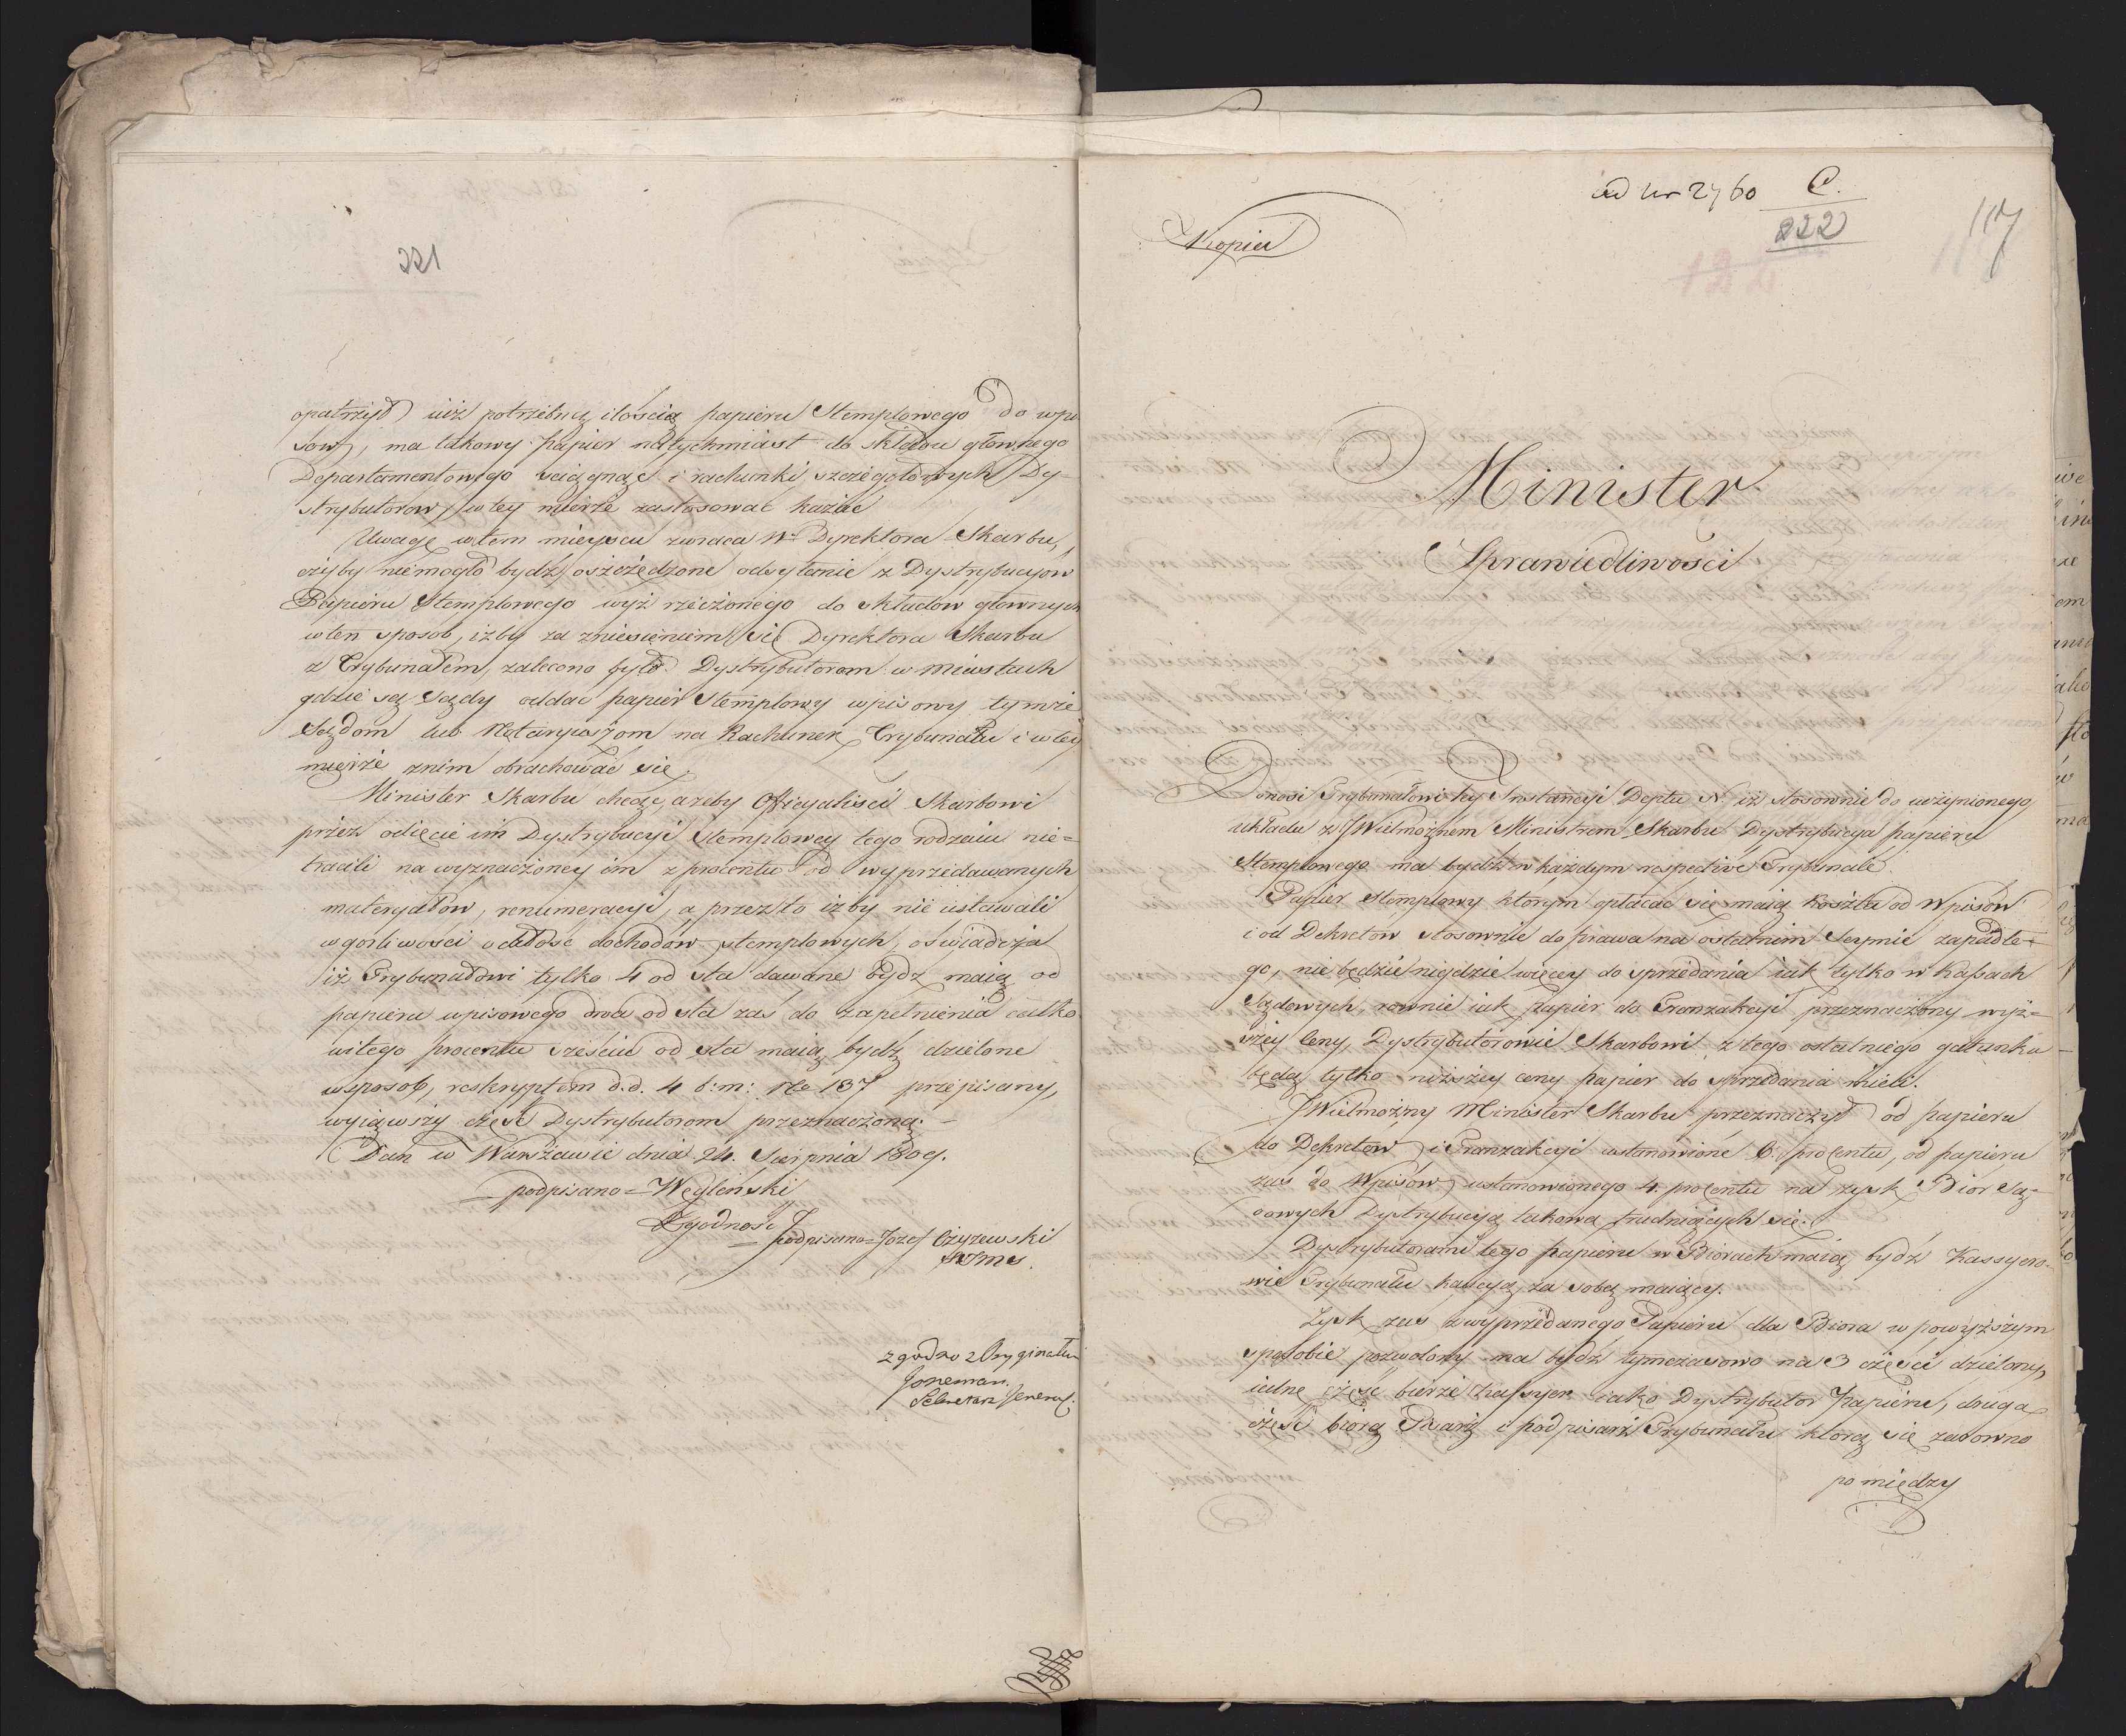 221
opatrzył iuż potrzebną ilością papieru Stemplowego do wpi
sow, ma takowy papier natychmiast do składu głównego
Departamentowego sciągnąć i rachunki szczegółowych Dy-
strybutorow w tey mierze zastosować każąc
Uwagę w tem mieyscu zwraca Wo Dyrektora Skarbu,
czyby niemogło bydź oszczędzone odsyłanie z Dystrybucyow
Papieru Stemplowego wyż rzeczonego do składow głownych
w ten sposob, iżby za zniesieniem się Dyrektora Skarbu
z Trybunałem, zalecono było Dystrybutorom w miastach
gdzie są Sądy oddać papier Stemplowy wpisowy tymże
Sądom lub Notaryuszom na Rachunek Trybunału i w tey
mierze znim obrachować się.
Minister Skarbu chcąc, ażeby Officyaliści Skarbowi
przez odięcie im Dystrybucyi Stemplowey tego rodzaiu nie=
tracili na wyznaczoney im z procentu od wyprzedawanych
materyałow, renumeracyi, a przez to iżby nie ustawali
w gorliwości o całość dochodów stemplowych, oświadcza
iż Trybunałowi tylko 4 od sta dawane bydz maią od
papieru wpisowego dwa od sta zaś do zapełnienia całko
witego procentu sześciu od sta maią bydź dzielone
w sposob, reskryptem d.d. 4 b:m: No 137 przepisany,
wyiąwszy część Dystrybutorom przeznaczoną. -
Dan w Warszawie dnia 24. Sierpnia 1809.
podpisano = Węgleński
Zgodność
= podpisano = Jozef Czyżewski
zgodno z Oryginałem
Joneman
Sekretarz Jeneral.
ad Nr 2760 C.
222
117
Kopia
Minister
Sprawiedliwości
Donosi Trybunałowi Iey Instancyi Deptu N. iż stosownie do uczynionego
układu z JWielmożnem Ministrem Skarbu Dystrybucya papieru
Stemplowego ma bydź w każdym respective Trybunale.
Papier stemplowy ktorym opłacać się maią koszta od Wpisow
i od Dekretow stosownie do prawa na ostatnim Seymie zapadłe-
go, nie będzie nigdzie więcey do sprzedania iak tylko w Kassach
Sądowych, rownie iak papier do Tranzakcyi przeznaczony wyż=
szey Ceny, Dystrybutorowie Skarbowi z tego ostatniego gatunku
będą tylko niższey ceny papier do sprzedania mieli.
JWielmożny Minister Skarbu przeznaczył od papieru
do Dekretow i Tranzakcyi ustanowione 6. procentu, od papieru
zaś do Wpisów ustanowionego 4. procentu na zysk Bior Są-
dowych Dystrybucyą takową trudniących się.
Dystrybutorami tego papieru w Biorach maią bydź Kassyero-
wie Trybunału kaucyą za sobą maiący.
Zysk zaś z wyprzedanego Papieru dla Biora w powyższym
sposobie pozwolony ma bydź tymczasowo na 3 części dzielony,
iedną część bierze Kassyer iako Dystrybutor Papieru, drugą
część biorą Pisarz i podpisarz Trybunału ktorą się zarowno
pomiędzy